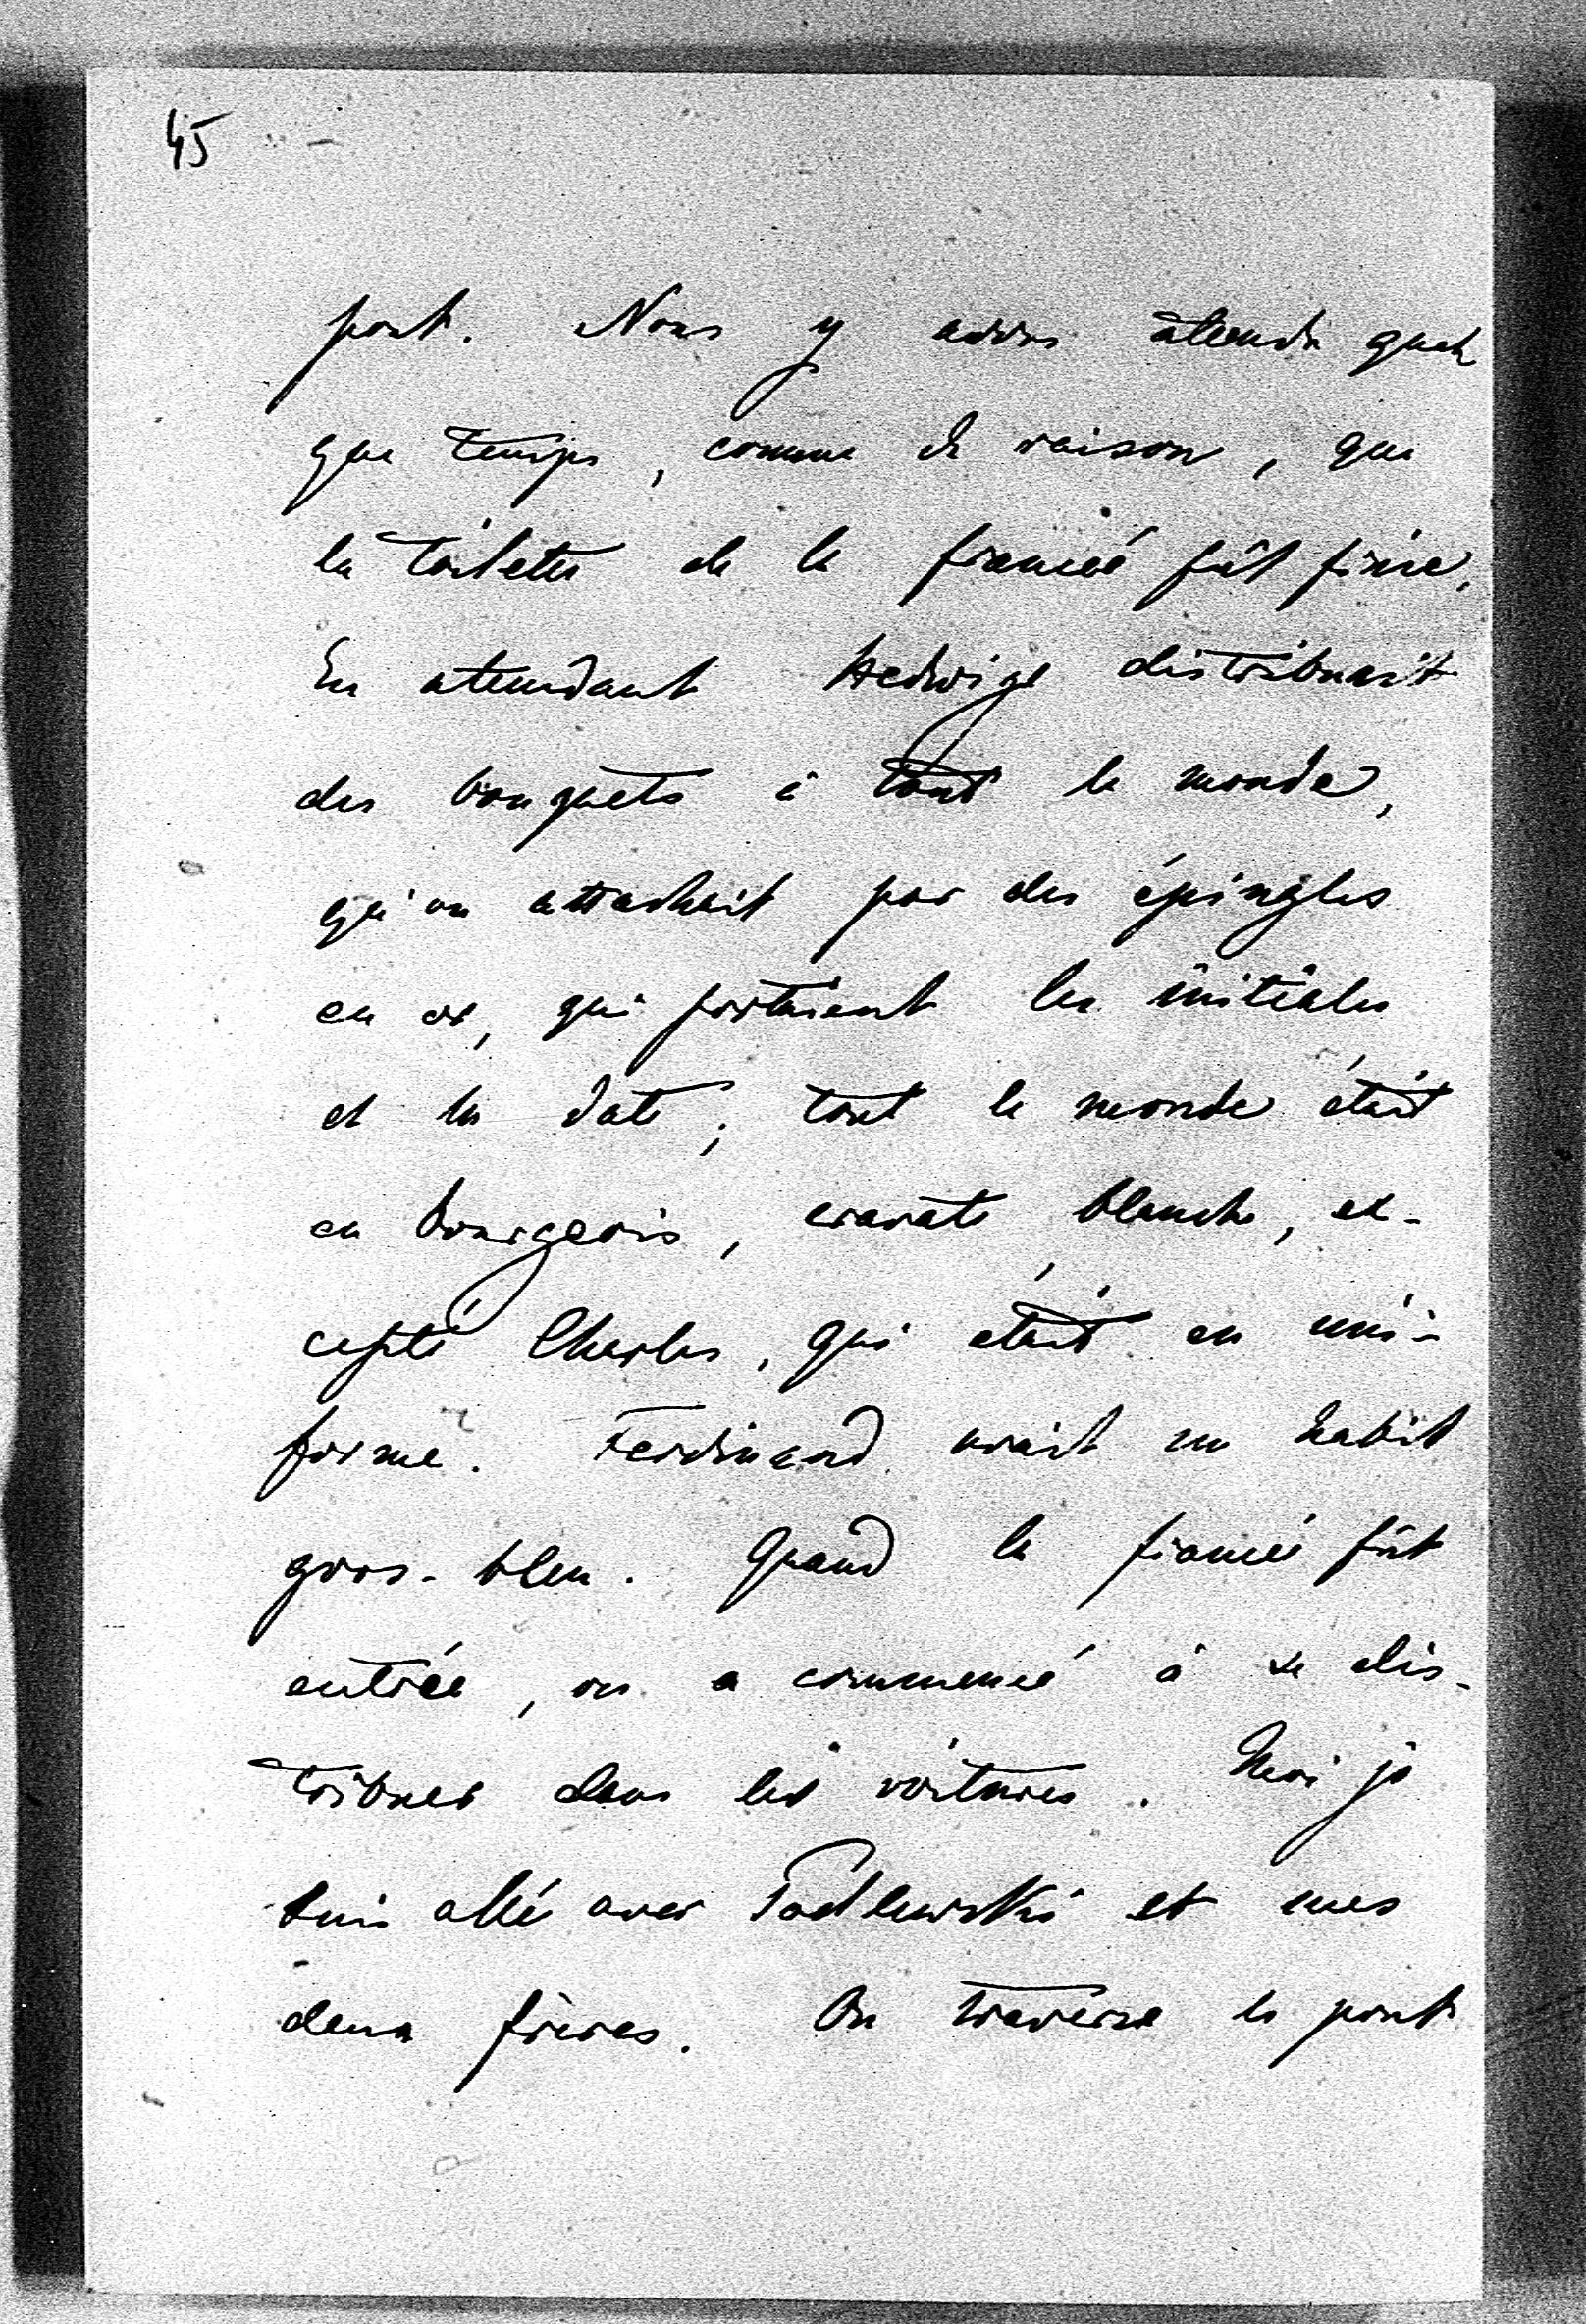 45
pont. Nous y avons atendu quel
que temps, comme de raison, que
la toilette de la fiancée fût finie.
En atendant Hedwige distribuait
des bouquets à tout le monde,
qu'on attachait par des épingles
en or, qui portaient les initiales
et la date; tout le monde était
en bourgeois, cravate blanche, ex-
cepté Charles, qui était en uni-
forme. Ferdinand avait un habit
gros-bleu. Quand la fiancée fût
entrée, on a commencé à se dis-
tribuer dans les voitures. Moi je
suis allé avec Podlewski et mes
deux frères. On traverse le pont